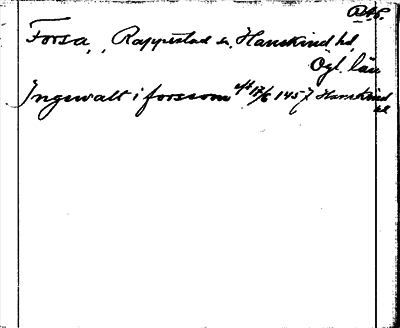 Forsa, Rappestad sn, Hanekind hd,
Ögl. län
Ingewalt i forssom u/s 17/6 1457 Hanekind
hd